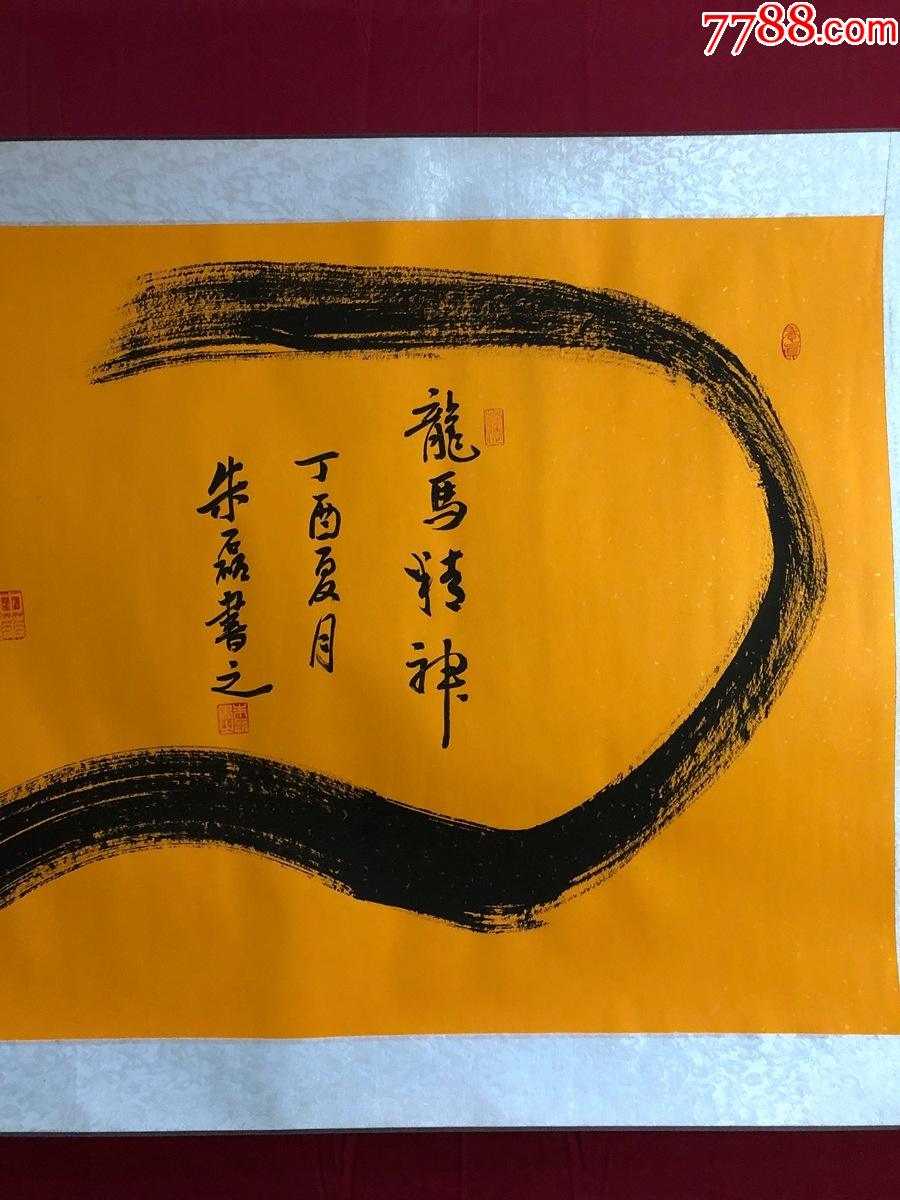 7788.com
龍馬精神
丁酉夏月
朱磊書之